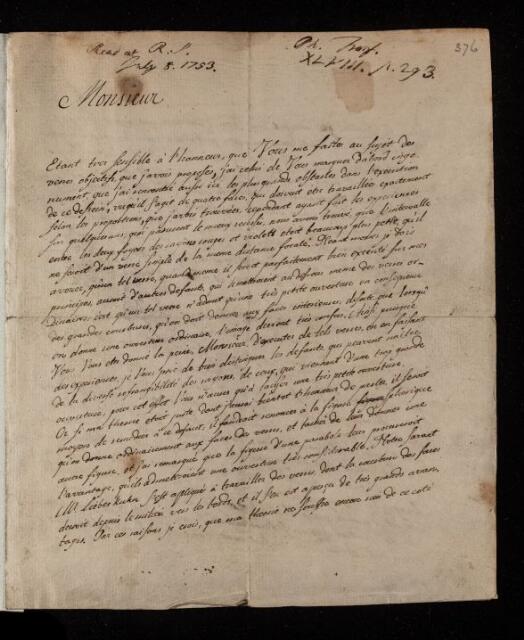 Read at R.S.
July 8. 1753.
Ph. Trans.
XLVIII. p. 293.
376
Monsieur
Etant tres sensible à l'honneur, que Vous me faites au sujet des
verres objectifs, que j'avois proposés, j'ai
que j'ai rencontré aussi ici les plus grands obstacles dans l'execution
de ce dessein, vu qu'il s'agit de quatre faces, qui doivent être travaillées exactement
selon les proportions, que j'avois trouvées. Cependant ayant fait les experiences
sur quelques uns, qui paroissent le mieux reussis, nous avons trouvé, que l'intervalle
entre les deux foyers des rayons rouges et violets etoit beaucoup plus petit, qu'il
ne seroit d'un verre simple de la meme distance focale. Néant moins je dois
avouer, qu'un tel verre, quand meme il seroit parfaitement bien executé sur mes
principes, auroit d'autres defauts, qui le mettroient au dessous meme des verres or-
dinaires: c'est qu'un tel verre n'admet qu'une très petite ouverture en consequence
des grandes courbures, qu'on doit donner aux faces interieures, desorte que lorsqu'
on donne une ouverture ordinaire, l'image devient très confuse.
Vous Vous etes donné la peine, Monsieur, d'executer de tels verres, en en faisant
des experiences, je Vous prie de bien distinguer les defauts, qui peuvent naître
de la diverse refrangibilité des rayons, de ceux, qui viennent d'une trop grande
ouverture; pour cet effet Vous n'aurez qu'à laisser une très petite ouverture.
Or si ma theorie etoit juste dont j'aurai bientôt l'honneur de parler, il seroit
moyen de remedier à ce defaut; il faudroit renoncer à la figure spherique
qu'on donne ordinairement aux faces des verres, et tacher de leur donner une
autre figure, et j'ai remarqué que la figure d'une parabole leur procureroit
l'avantage, qu'ils admettroient une ouverture très considerable. Notre savant
M. Lieberkuhn s'est appliqué à travailler des verres, dont la courbure des faces
decroit depuis le milieu vers les bords, et il s'en est aperçu de très grands avan-
tages. Par ces raisons je crois, que ma theorie ne souffre encore rien de ce coté